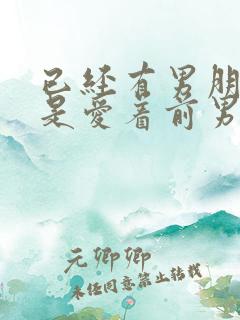 已经有男朋
是爱着前男
元卿卿
未经同意禁止转载